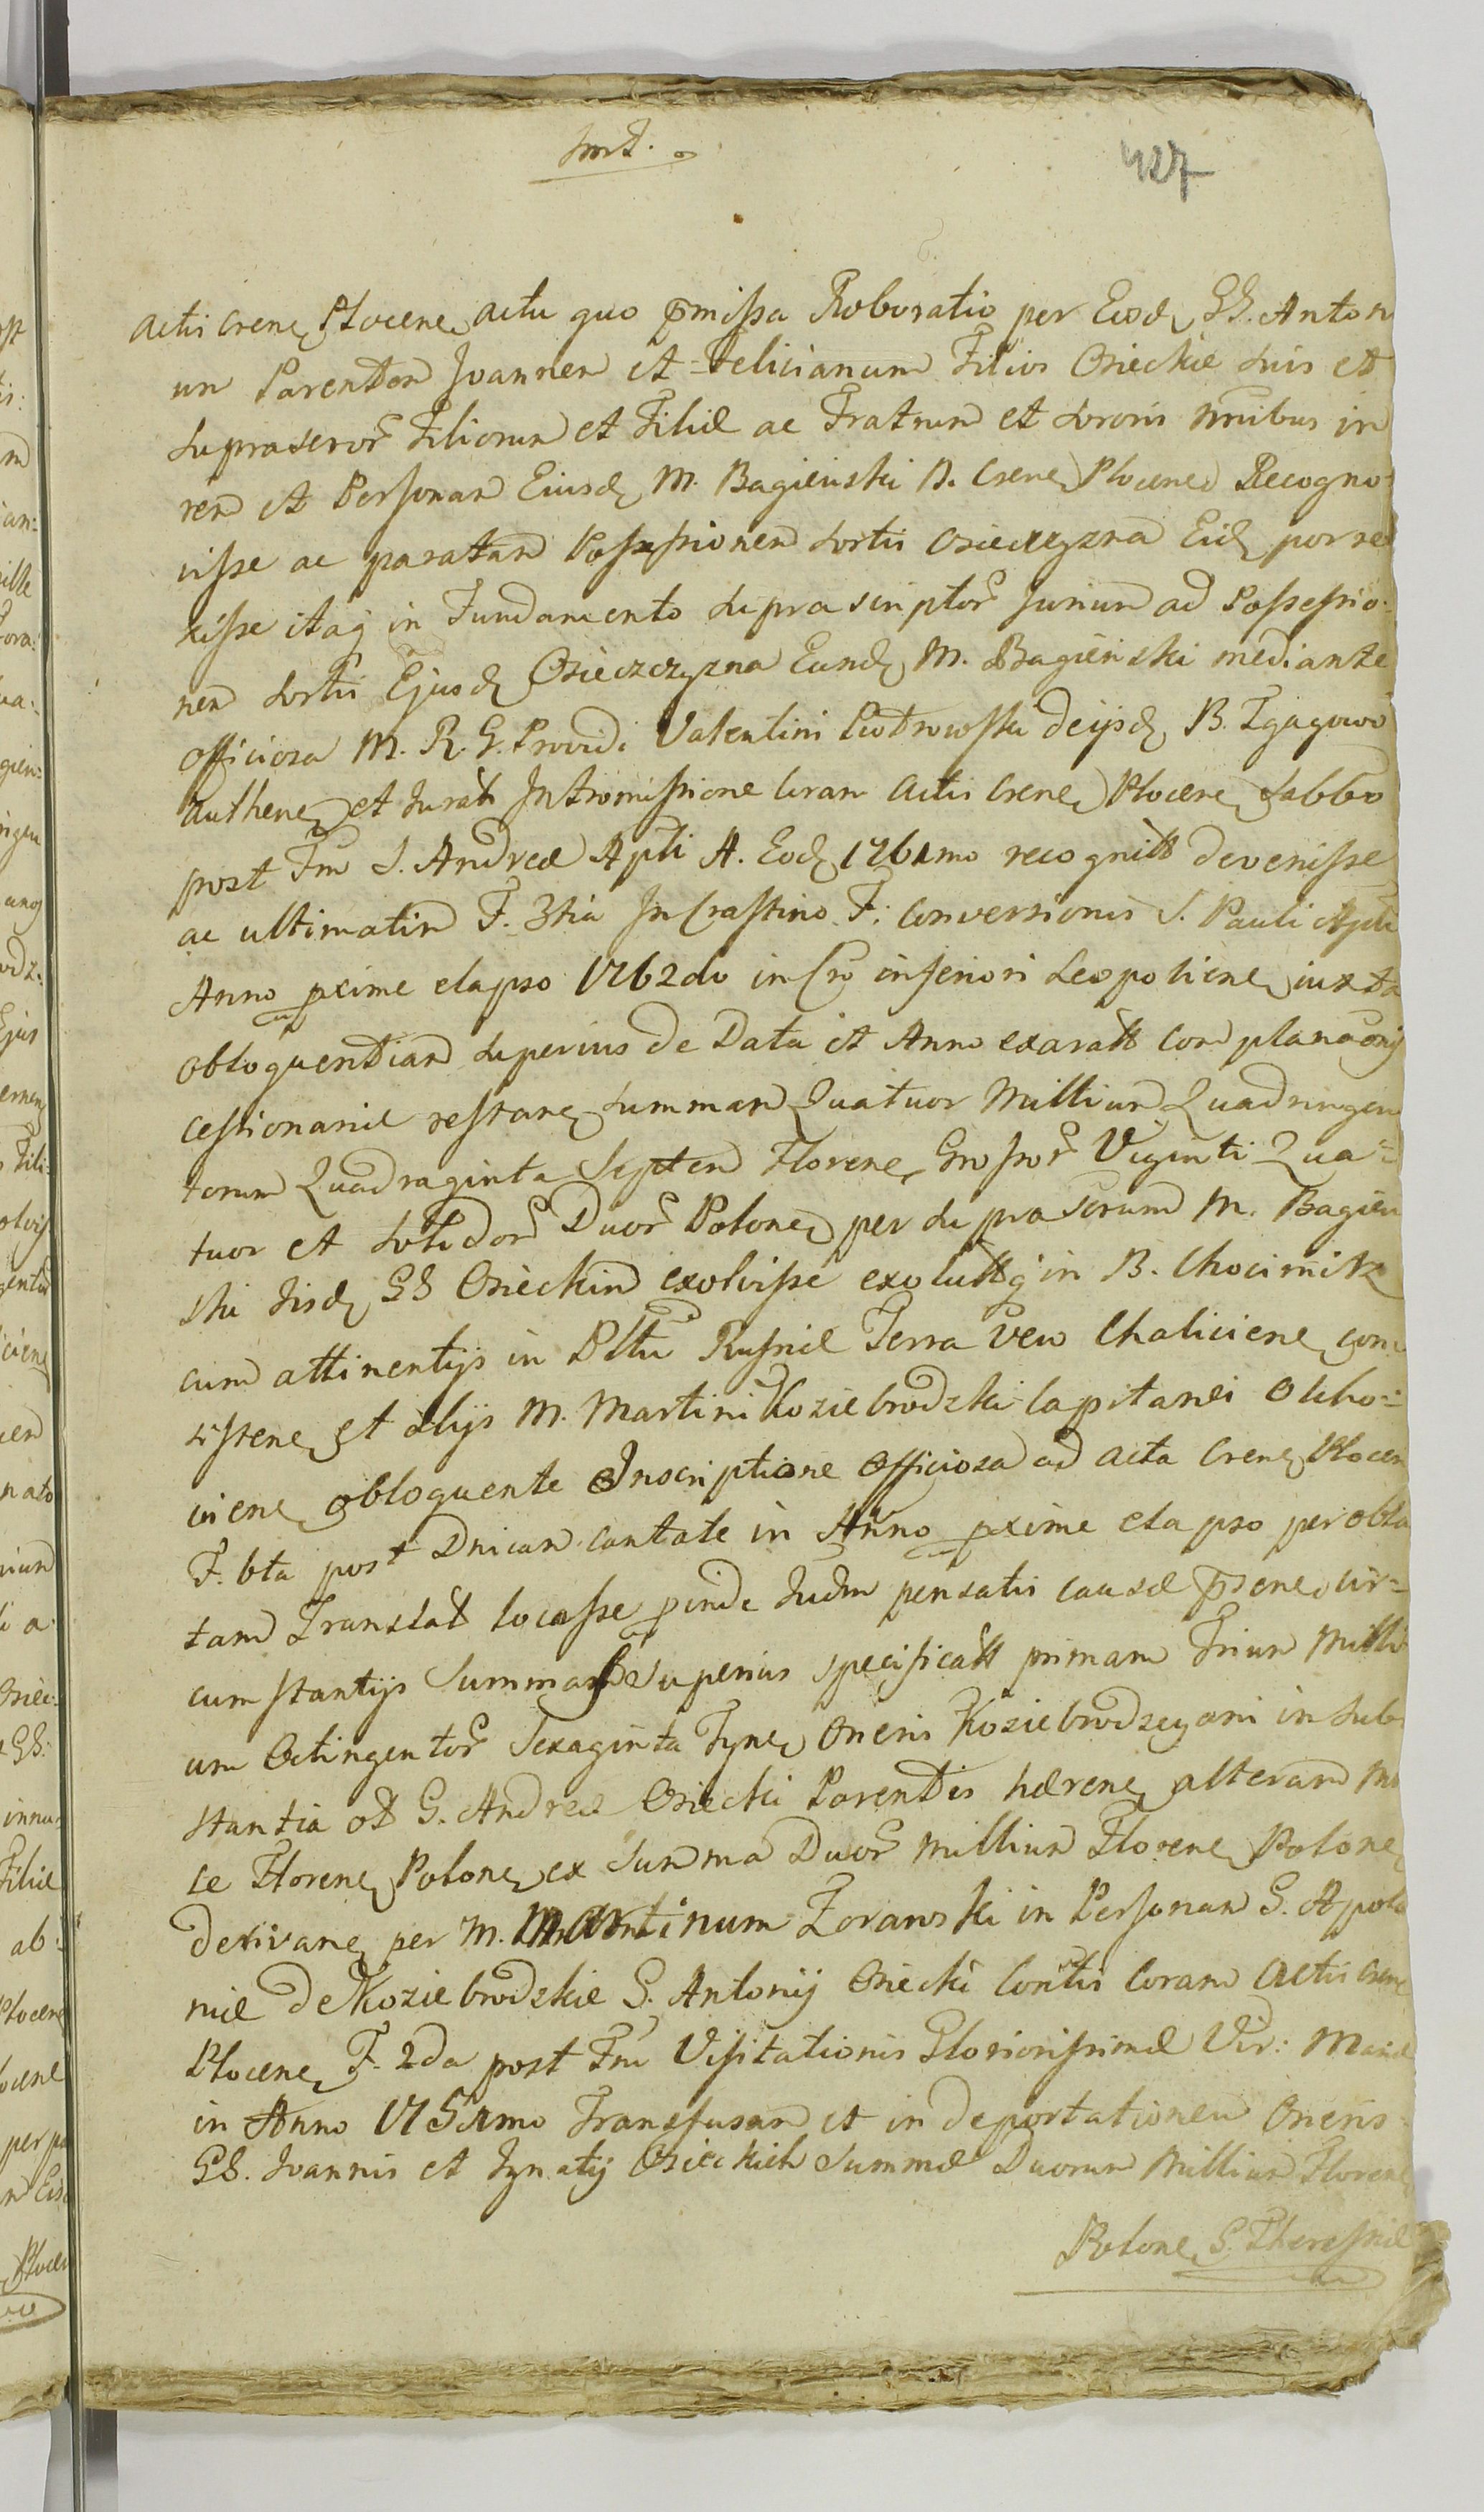 427
actis Crene Plocene actu quo pmissa Roboratio per Eosd GG. Anton
um Parentem Joannem et Felicianum Filios Osieckie suis et
suprascror Filiorum et Filiæ ac Fratrum et Sororis nnibus in
rem et Personam Eiusd M. Bagienski B. Crene Plocene Recogno
visse ac paratam Possessionem Sortis Osiecczyzna Eid porre
xisse itaq in Fundamento suprascriptor Jurium ad Possessio
nem Sortis Ejusd Osieczczyzna Eund M. Bagienski mediante
officiosa M. R. G. Providi Valentini Piotrowski de ijsd B. Zgagowo
authene et Jurat Intromissione coram Actis Crene Plocene Sabbo
post Fm S. Andreæ Apli A. Eod 1761mo recognitt devenisse
ac ultimatim F. 3tia In Crastino F: Conversionis S. Pauli Apli
Anno pxime elapso 1762do in Cro inferiori Leopoliene juxta
obloquentiam superius de Data et Anno exaratt complanaonis
cessionariæ restane Summam Quatuor Millium Quadringen
torum Quadraginta Septem Florene Grossor Viginti Qua=
tuor et Solidor Duor Polone per suprascrum M. Bagien
ski Iisd GG Osieckim exolvisse exolutt q in B. Chocimirz
cum attinentijs in Pttu Russiæ Terra vero Chaliciene con
sistene et alijs M. Martini Koziebrodzki Capitanei Olcho=
viene obloquente Inscriptione officiosa ad acta Crene Plocen
F. 6ta post Dnicam Cantate in Anno pxime elapso per obla
tam Translat locasse pinde Judm pensatis causæ psene cir=
cumstantijs Summas Superius specificatt primam Trium Milli
um Octingentor Sexaginta Tyne Oneris Koziebrodzcyani in sub
stantia ob G. Andreæ Osiecki Parentis hærene alteram Mi
le Florene Polone ex Summa Duor Millium Florene Polone
derivane per M. Martinum Zoranski in Personam G. Apolo
niæ de Koziebrodzkie G. Antonij Osiecki Contis coram Actis Crene
Plocene F. 2da post Fm Visitationis Gloriosissimæ Vir: Mariæ
in Anno Transfusam et in deportationem Oneris
GG. Joannis et Ignatij Osieckich Summæ Duorum Millium Florene
Polone G. Theressiæ